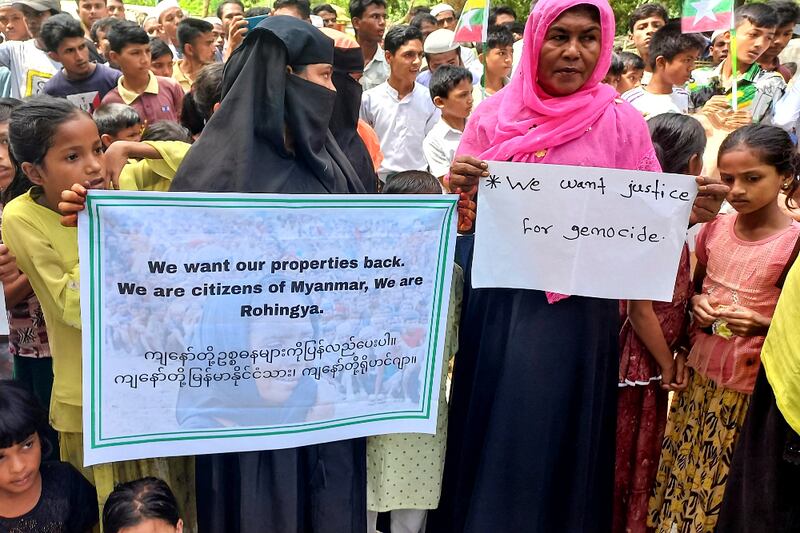 We want our properties back.
We are citizens of Myanmar, We are
Rohingya.
ကျနော်တို့ဥစ္စဓနများကိုပြန်လည်ပေးပါ။
ကျနော်တို့မြန်မာနိုင်ငံသား၊ ကျနော်တို့ရိုဟင်ဂျာ။
* We want justice
for genocide.